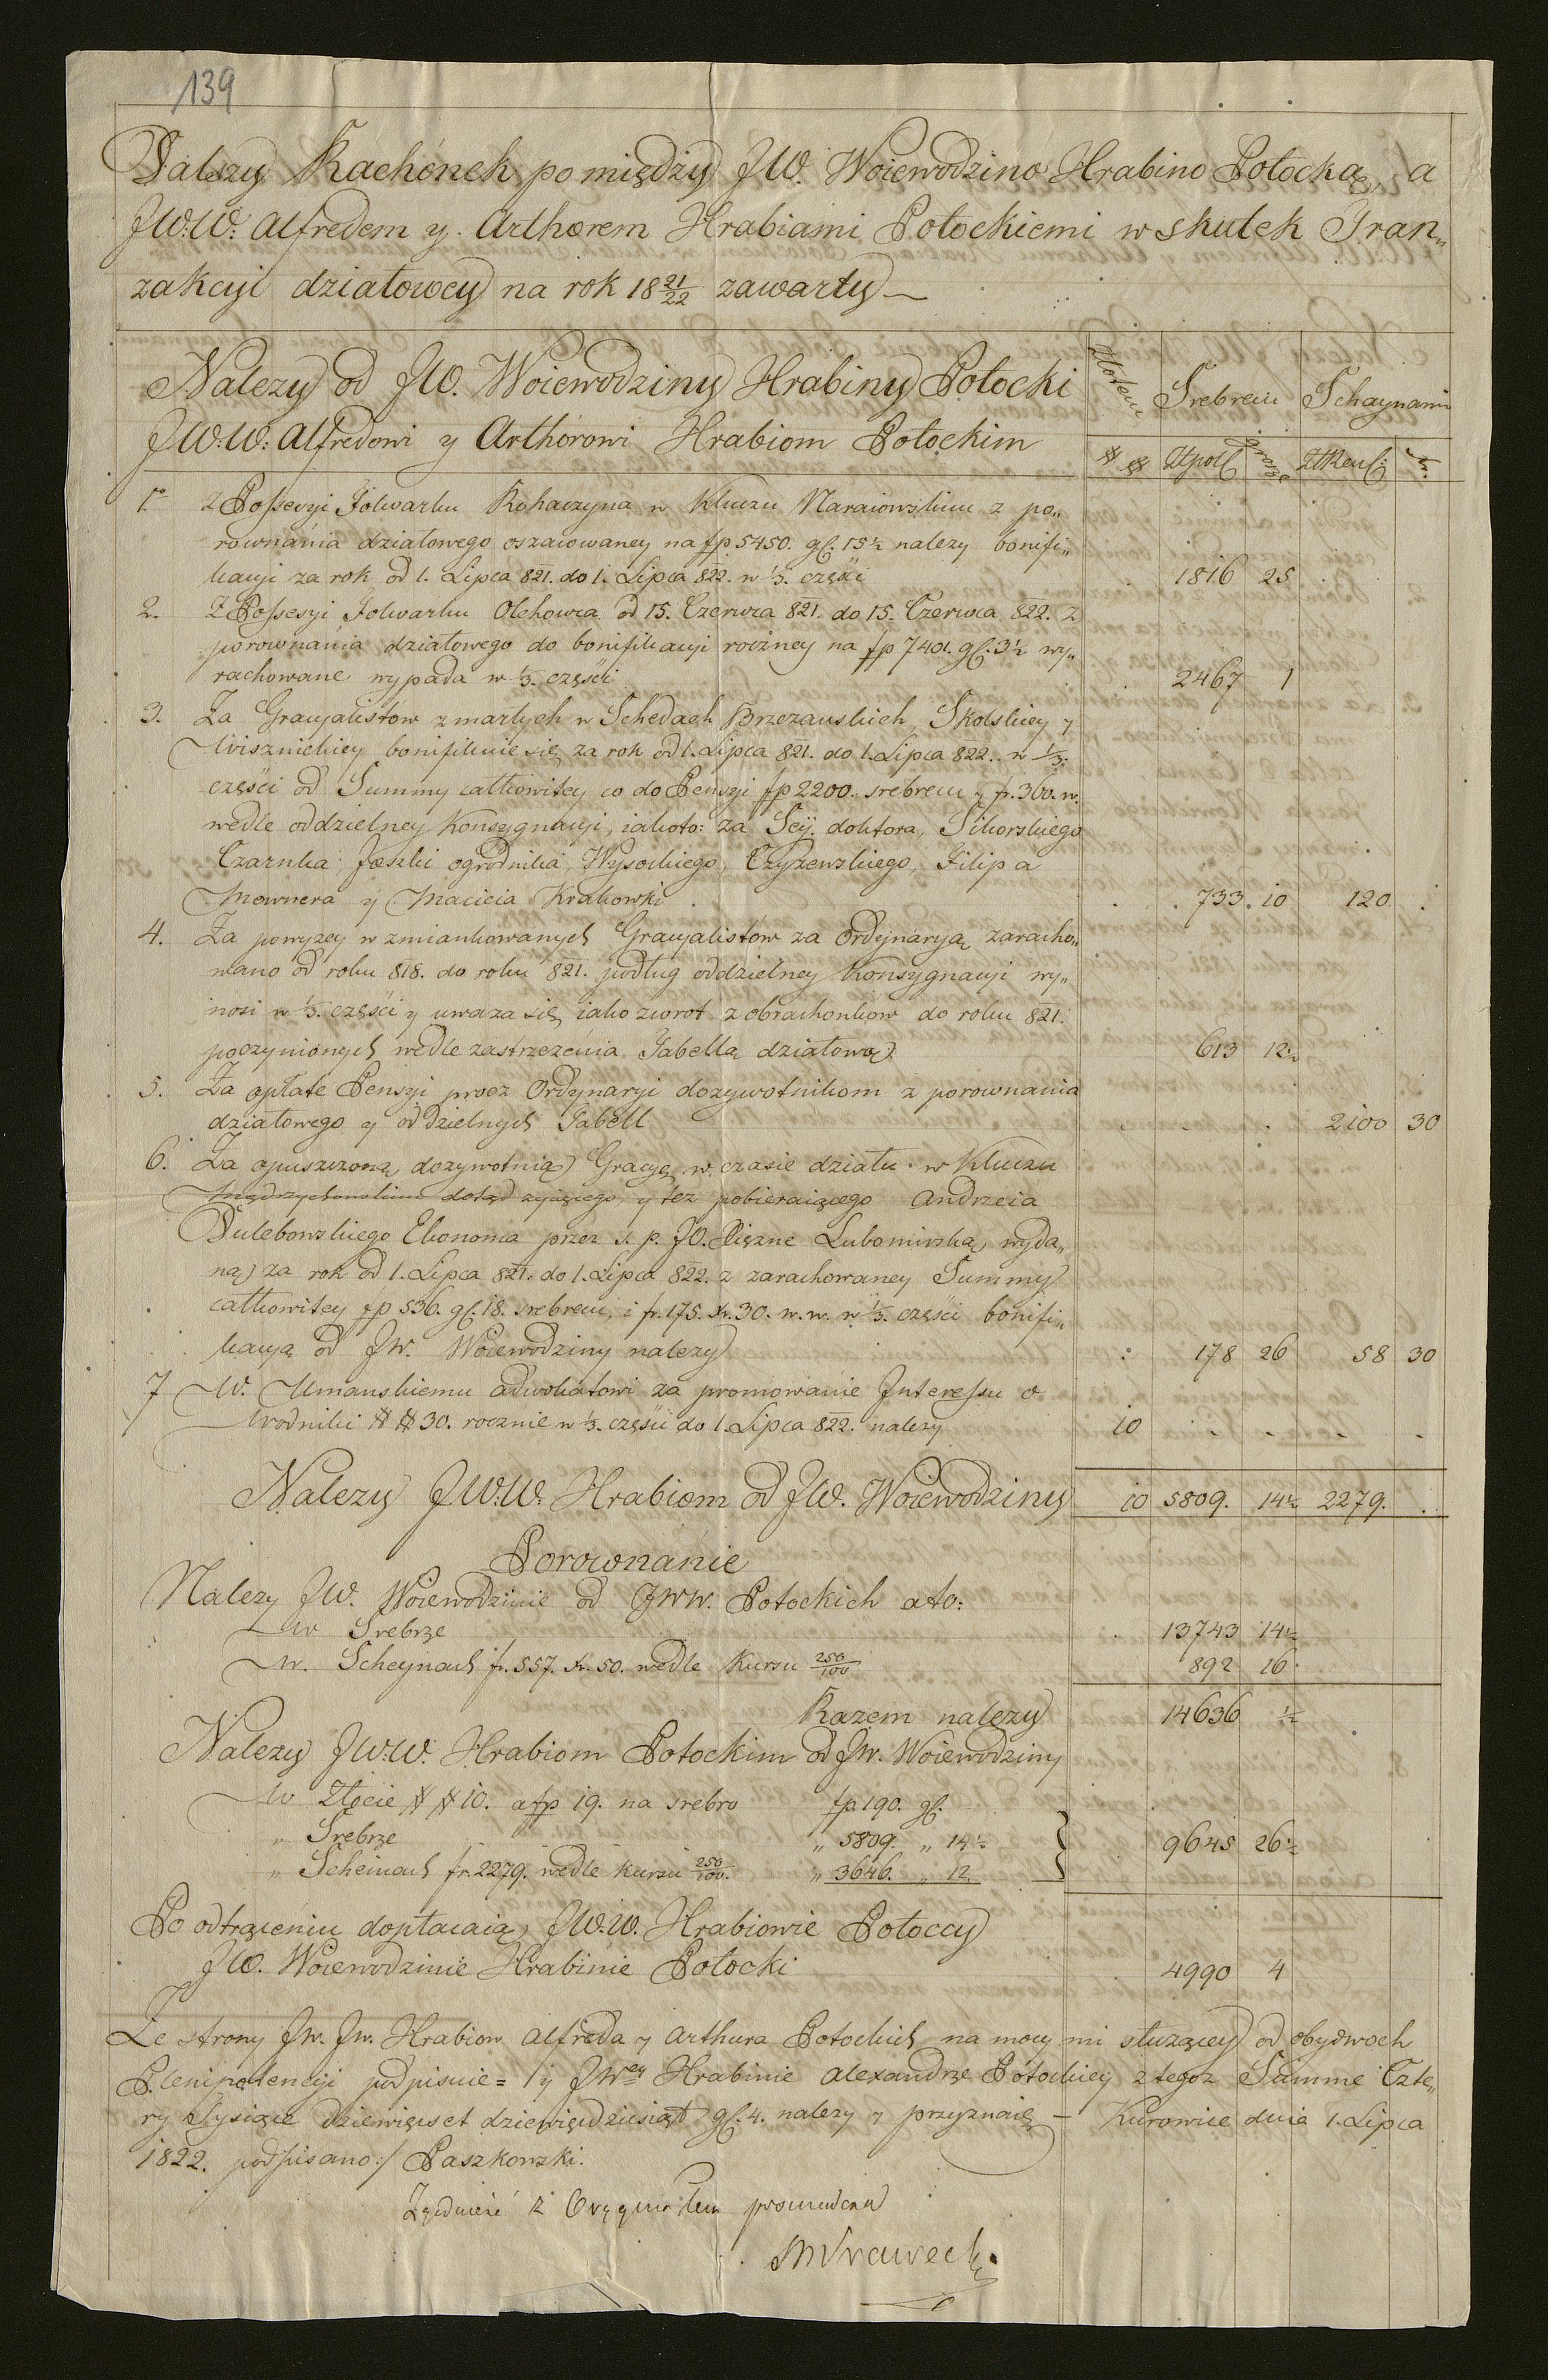 139
Dalszy Rachónek pomiędzy JW. Woiewodziną Hrabiną Potocką, a
JW.W. Alfredem y Arthorem Hrabiami Potockiemi w skutek Tran„
zakcyi działowey na rok 18 21/22 zawarty —
Nalezy od JW. Woiewodziny Hrabiny Potocki
JW.W. Alfredowi y Arthorowi Hrabiom Potockim
Złotem Srebrem Schaynami
## Złpol Grosze ZłReń Xr.
1o Z Possessyi Folwarku Rohaczyna w Kluczu Naraiowskim z po„
rownánia działowego oszacowaney na fp 5450. gl. 15½ nalezy bonifi„
kacyi za rok od 1. Lipca 821. do 1. Lipca 822. w ⅓ części 1816 25
2. Z Possesyi Folwarku Olchowca od 15. Czerwca 821. do 15. Czerwca 822. z
porownánia działowego do bonifikacyi roczney na fp 7401. gl. 3½ wy„
rachowane wypada w ⅓. części 2467 1
3. Za Gracyalistow zmarłych w Schedach Brzezanskich, Skolskiey y
Wisznickiey bonifikuie się za rok od 1. Lipca 821. do 1. Lipca 822. w ⅓.
części od Summy całkowitey co do Pensyi fp 2200. srebrem y fr. 360. w.
wedle oddzielney Konsygnacyi, iakoto: za Scÿ. doktora, Sikorskiego
Czarnka, Jaszki ogrodnika, Wysockiego, Czyzewskiego, Filipa
Mownera y Macieia Krakowski 733. 10 120
4. Za powyzey wzmiankowanych Gracyalistów za Ordynaryą zaracho„
wano od roku 818. do roku 821. podług oddzielney Konsygnacyi wy„
nosi w ⅓. części y uwaza się, iako zwrot z obrachonków do roku 821.
poczynionych wedle zastrzezenia Tabellą działową 613 12½
5. Za opłate Pensyi procz Ordynaryi dozywotnikom z porownania
działowego y oddzielnych Tabell 2100 30
6. Za opuszczoną, dozywotnią Gracyę, w czasie działu w Kluczu
dotąd zyiącego, y tez pobieraiącego Andrzeia
Dulebowskiego Ekonoma przez s. p. JO. Xięzne Lubomirską, wyda„
ną za rok od 1. Lipca 821. do 1. Lipca 822. z zarachowaney Summy
całkowitey fp 536. gl. 18. srebrem, i fr. 175. Xr. 30. w. w. w ⅓. części bonifi„
kacyą od JW. Woiewodziny nalezy 178 26 58 30
7 W. Umanskiemu adwokatowi za promowanie Interessu o
Wodniki ## 30. rocznie w ⅓. części do 1. Lipca 822. nalezy 10
Nalezy JW.W. Hrabiom od JW. Woiewodziny 10 5809. 14½ 2279.
Porownánie
Nalezy JW. Woiewodzinie od JWW. Potockich ato:
W Srebrze 13743 14½
W. Scheynach fr. 557. Xr. 50. wedle Kursu 250/100 892 16
Razem nalezy 14636 ½
Nalezy JW.W. Hrabiom Potockim od JW. Woiewodziny
W Złocie ## 10. a fp 19. na srebro fp 190. gl.
„ Srebrze „ 5809. „ 14½ 9645 26½
„ Scheinach fr. 2279. wedle kursu 250/100. „ 3646. „ 12
Po odtrąceniu dopłacaią, JW.W. Hrabiowie Potoccy
JW. Woiewodzinie Hrabinie Potocki 4990 4
Ze strony JW. JW. Hrabiow Alfreda y Arthura Potockich, na mocy mi słuzącey od obydwoch
Plenipotencyi podpisuie = y JWey Hrabinie Alexandrze Potockiey z tegoz Summe Czte„
ry Tysiące dziewięcset dziewięcdziesiąt gl. 4. nalezy y przyznaię — Kurowice dnia 1. Lipca
1822. podpisano:/ Paszkowski.
Zgodność z Oryginałem poswiadcza